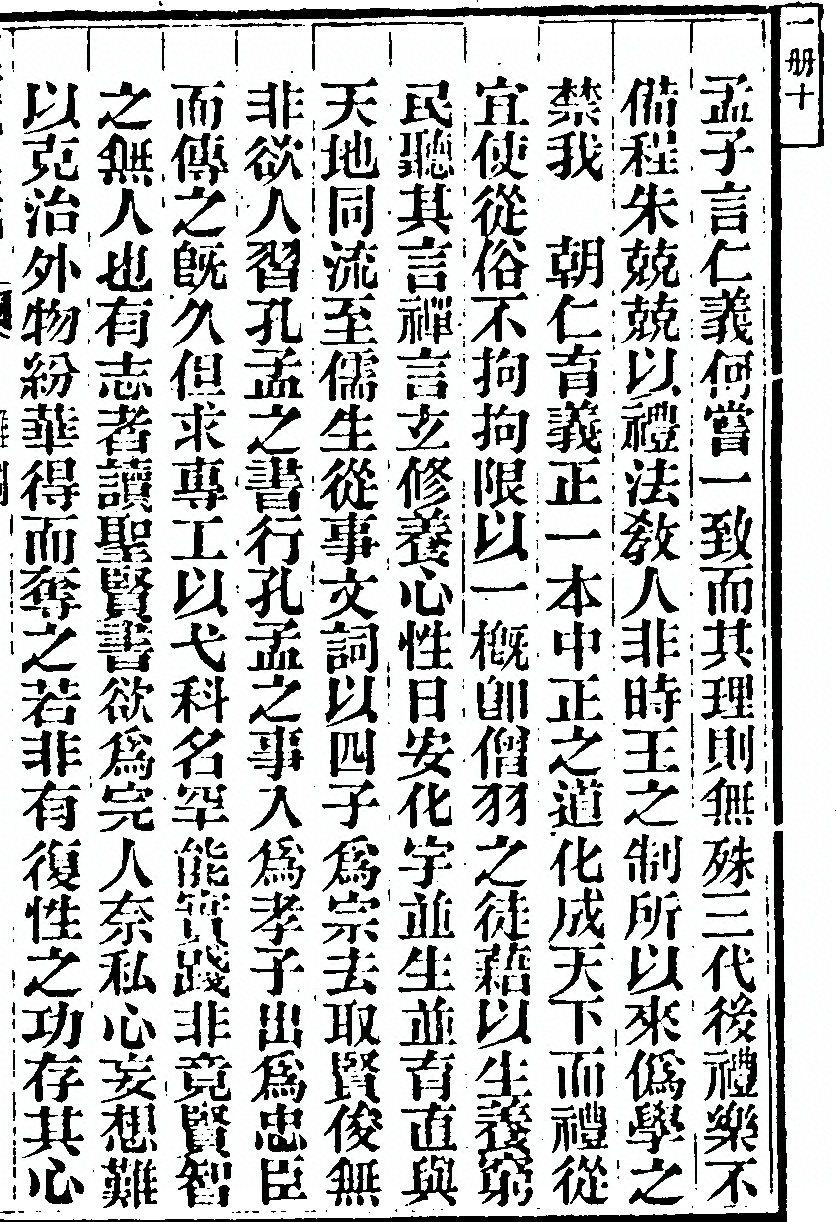 一册十
孟子言仁義何嘗一致而其理則無殊三代後禮樂不
備程朱兢兢以禮法教人非時王之制所以來僞學之
禁我　朝仁育義正一本中正之道化成天下而禮從
宜使從俗不拘拘限以一概卽僧羽之徒藉以生義窮
民聽其言禪言玄修養心性日安化宇並生並育直與
天地同流至儒生從事文詞以四子爲宗去取賢俊無
非欲人習孔孟之書行孔孟之事入爲孝子出爲忠臣
而傳之旣久但求專工以弋科名罕能實踐非竟賢智
之無人也有志者讀聖賢書欲爲完人奈私心妄想難
以克治外物紛華得而奪之若非有復性之功存其心